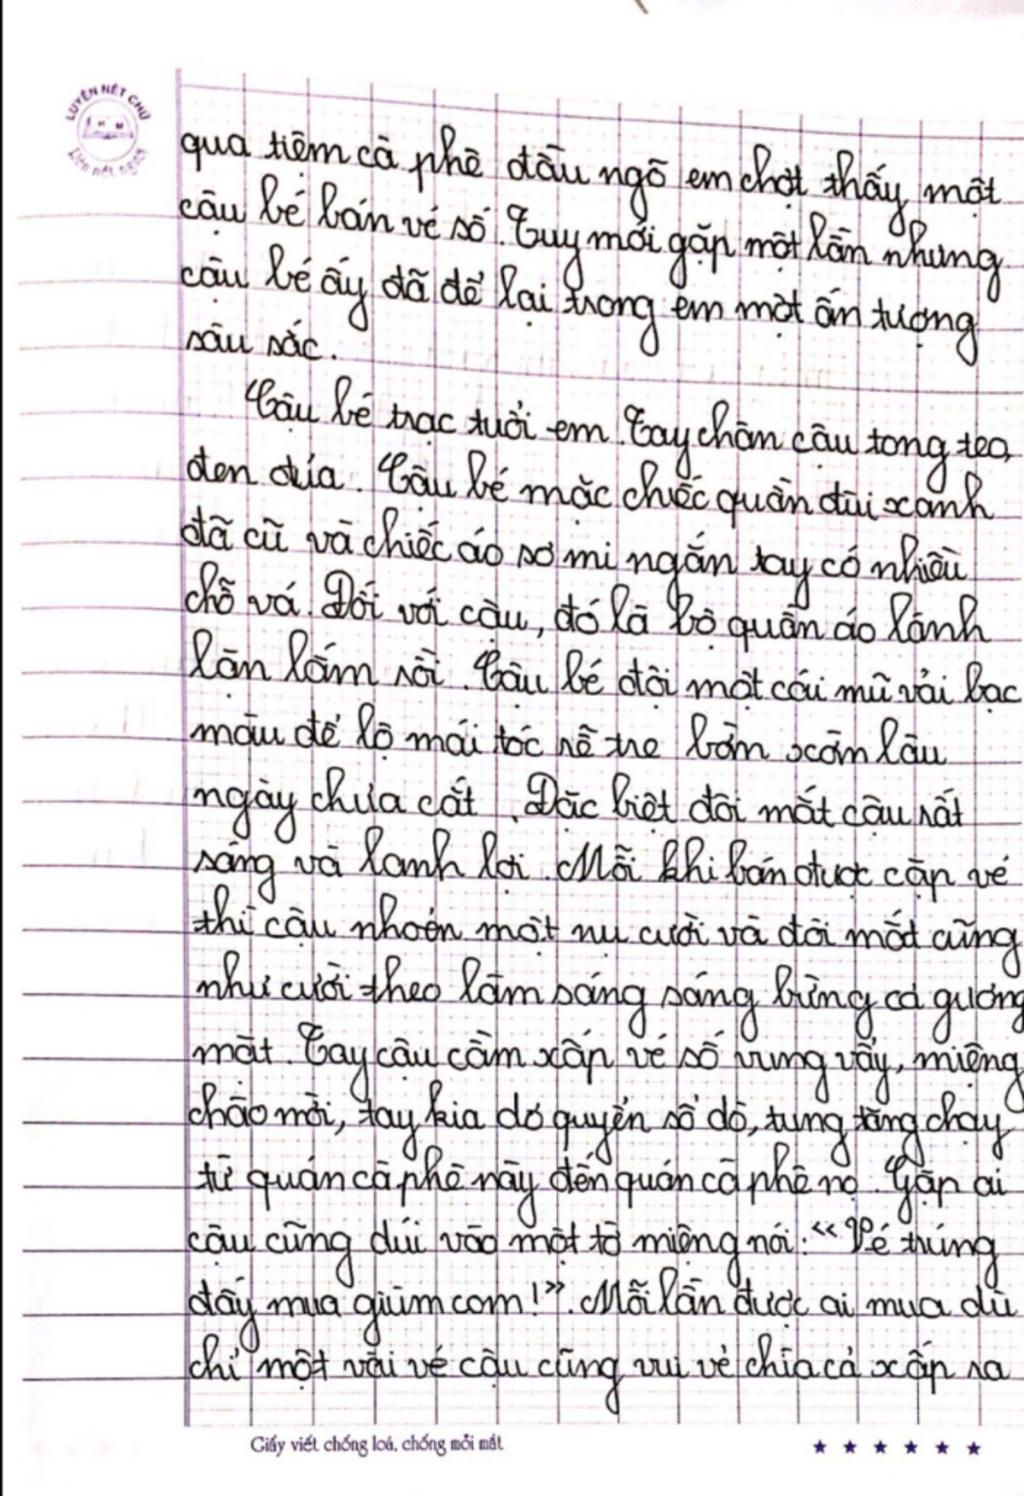 LUYỆN NÉT CHỮ
RÈN NẾT NGƯỜI
qua tiệm cà phê đầu ngõ em chợt thấy một
cậu bé bán vé số. Tuy mới gặp một lần nhưng
cậu bé ấy đã để lại trong em một ấn tượng
sâu sắc.
Cậu bé trạc tuổi em. Tay chân cậu tong teo,
đen đúa. Cậu bé mặc chiếc quần đùi xanh
đã cũ và chiếc áo sơ mi ngắn tay có nhiều
chỗ vá. Đối với cậu, đó là bộ quần áo lành
lặn lắm rồi. Cậu bé đội một cái mũ vải bạc
màu để lộ mái tóc rễ tre bờm xờm lâu
ngày chưa cắt. Đặc biệt đôi mắt cậu rất
sáng và lanh lợi. Mỗi khi bán được cặp vé
thì cậu nhoẻn một nụ cười và đôi mắt cũng
như cười theo làm sáng sáng bừng cả gương
mặt. Tay cậu cầm xấp vé số vung vẩy, miệng
chào mời, tay kia dơ quyển sổ dò, tung tăng chạy
từ quán cà phê này đến quán cà phê nọ. Gặp ai
cậu cũng dúi vào một tờ miệng nói: "Vé trúng
đấy mua giùm con!". Mỗi lần được ai mua dù
chỉ một vài vé cậu cũng vui vẻ chìa cả xấp ra
Giấy viết chống loá, chống mỏi mắt